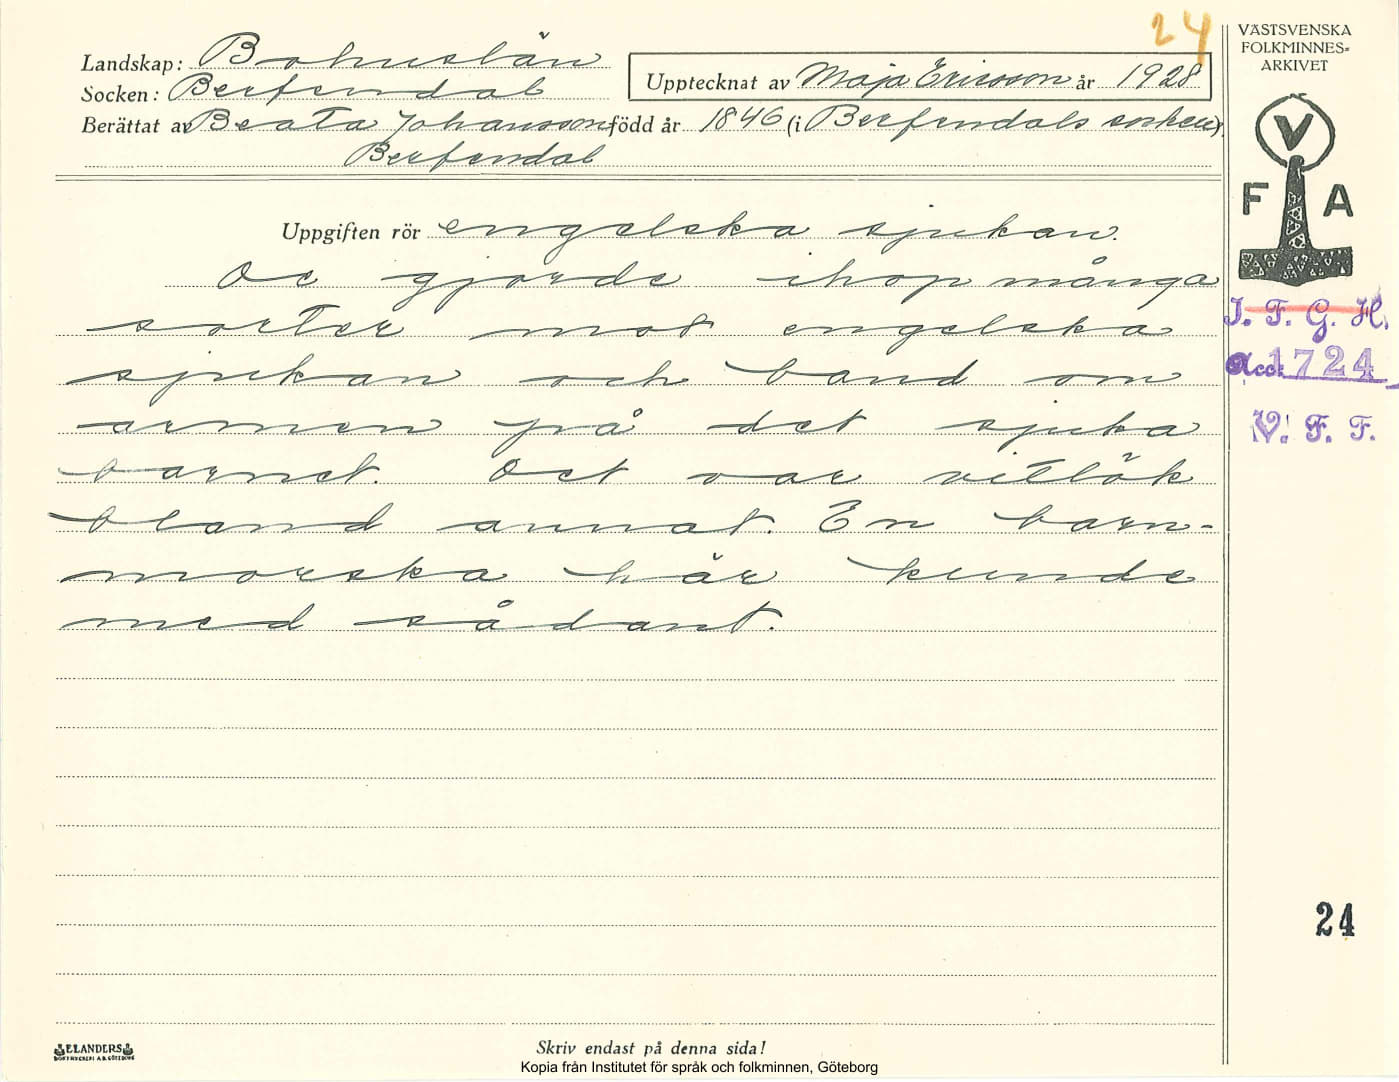 24
VÄSTSVENSKA
FOLKMINNES=
ARKIVET
Landskap: Bohuslän
Upptecknat av Maja Ericsson år 1928
Socken: Berfendal
Berättat av Beata Johansson född år 1846 (i Berfendals socken)
Berfendal
V
F A
Uppgiften rör engelska sjukan.
De gjorde ihop många
sorter mot engelska
sjukan och band om
armen på det sjuka
barnet. Det var vitlök
bland annat. En barn-
morska här kunde
med sådant.
I. F. G. H.
Acc. 1724
V. F. F.
24
ELANDERS
BOKTRYCKERI A.B. GÖTEBORG
Skriv endast på denna sida!
Kopia från Institutet för språk och folkminnen, Göteborg